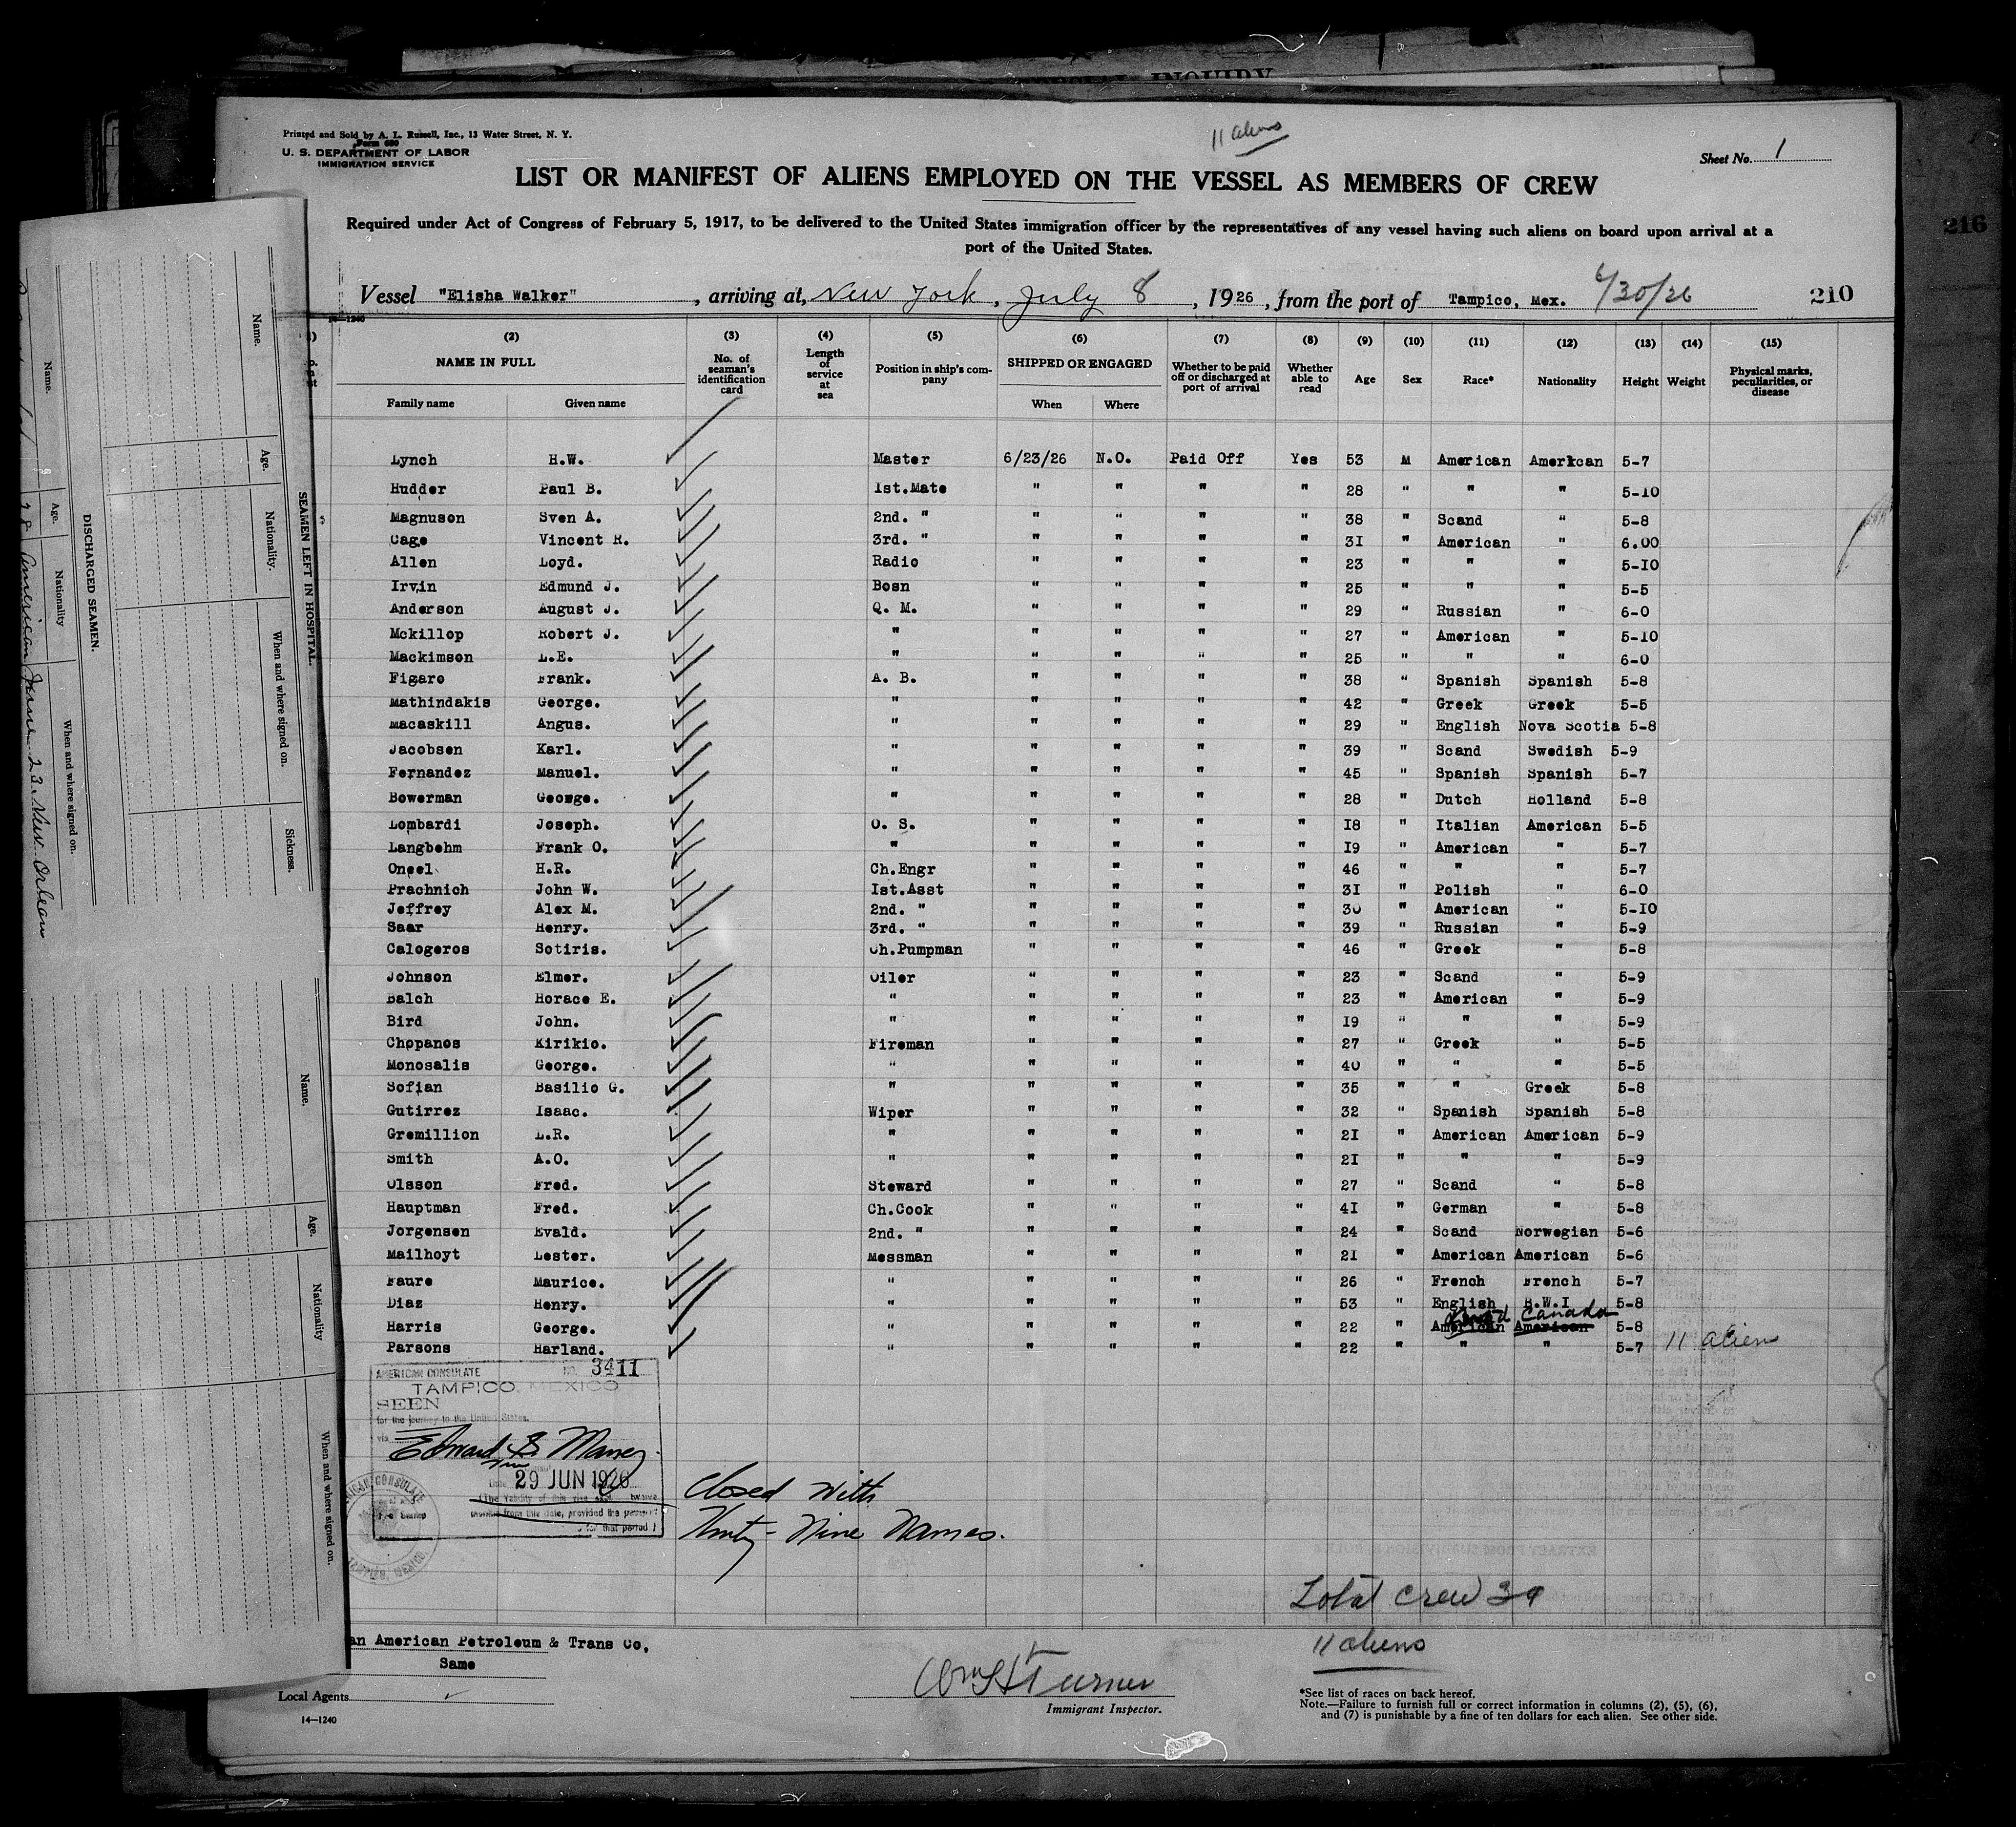 SPECIAL INQUIRY
11 aliens
Printed and Sold by A. L. Russell, Inc., 13 Water Street, N. Y.
Form 680
U. S. DEPARTMENT OF LABOR
IMMIGRATION SERVICE
Sheet No. 1
LIST OR MANIFEST OF ALIENS EMPLOYED ON THE VESSEL AS MEMBERS OF CREW
216
Required under Act of Congress of February 5, 1917, to be delivered to the United States immigration officer by the representatives of any vessel having such aliens on board upon arrival at a
port of the United States.
Vessel "Elisha Walker", arriving at, New York, July 8, 1926, from the port of Tampico, Mex. 6/30/26 210
14-1240
(2) (3) (4) (5) (6) (7) (8) (9) (10) (11) (12) (13) (14) (15)
NAME IN FULL No. of seaman's identification card Length of service at sea Position in ship's company SHIPPED OR ENGAGED Whether to be paid off or discharged at port of arrival Whether able to read Age Sex Race* Nationality Height Weight Physical marks, peculiarities, or disease
Family name Given name When Where
Lynch H.W. Master 6/23/26 N.O. Paid Off Yes 53 M American American 5-7
Hudder Paul B. 1st.Mate " " " " 28 " " " 5-10
Magnuson Sven A. 2nd. " " " " " 38 " Scand " 5-8
Cage Vincent R. 3rd. " " " " " 31 " American " 6.00
Allen Loyd. Radio " " " " 23 " " " 5-10
Irvin Edmund J. Bosn " " " " 25 " " " 5-5
Anderson August J. Q. M. " " " " 29 " Russian " 6-0
Mckillop Robert J. " " " " " 27 " American " 5-10
Mackimson L.E. " " " " " 25 " " " 6-0
Figaro Frank. A. B. " " " " 38 " Spanish Spanish 5-8
Mathindakis George. " " " " " 42 " Greek Greek 5-5
Macaskill Angus. " " " " " 29 " English Nova Scotia 5-8
Jacobsen Karl. " " " " " 39 " Scand Swedish 5-9
Fernandez Manuel. " " " " " 45 " Spanish Spanish 5-7
Bowerman George. " " " " " 28 " Dutch Holland 5-8
Lombardi Joseph. O. S. " " " " 18 " Italian American 5-5
Langbehm Frank O. " " " " " 19 " American " 5-7
Oneel H.R. Ch.Engr " " " " 46 " " " 5-7
Prachnich John W. Ist.Asst " " " " 31 " Polish " 6-0
Jeffrey Alex M. 2nd. " " " " " 30 " American " 5-10
Saar Henry. 3rd. " " " " " 39 " Russian " 5-9
Calogeros Sotiris. Ch.Pumpman " " " " 46 " Greek " 5-8
Johnson Elmer. Oiler " " " " 23 " Scand " 5-9
Balch Horace E. " " " " " 23 " American " 5-9
Bird John. " " " " " 19 " " " 5-9
Chopanos Kirikio. Fireman " " " " 27 " Greek " 5-5
Monosalis George. " " " " " 40 " " " 5-5
Sofian Basilio G. " " " " " 35 " " Greek 5-8
Gutirrez Isaac. Wiper " " " " 32 " Spanish Spanish 5-8
Gremillion L.R. " " " " " 21 " American American 5-9
Smith A.O. " " " " " 21 " " " 5-9
Olsson Fred. Steward " " " " 27 " Scand " 5-8
Hauptman Fred. Ch.Cook " " " " 41 " German " 5-8
Jorgensen Evald. 2nd. " " " " " 24 " Scand Norwegian 5-6
Mailhoyt Lester. Messman " " " " 21 " American American 5-6
Faure Maurice. " " " " " 26 " French French 5-7
Diaz Henry. " " " " " 53 " English B.W.I 5-8
Canada
Harris George. " " " " " 22 " American American 5-8
Parsons Harland. " " " " " 22 " " " 5-7 11 alien
AMERICAN CONSULATE No. 3411
TAMPICO, MEXICO
SEEN
for the journey to the United States.
via
Edward S. Maney
29 JUN 1926
Closed with
Thirty-Nine Names.
Total Crew 39
11 aliens
an American Petroleum & Trans Co,
Same
Local Agents
14—1240
Wm H Turner
Immigrant Inspector.
*See list of races on back hereof.
Note.—Failure to furnish full or correct information in columns (2), (5), (6),
and (7) is punishable by a fine of ten dollars for each alien. See other side.
SEAMEN LEFT IN HOSPITAL.
Name. Age. Nationality. When and where signed on. Sickness.
DISCHARGED SEAMEN.
Name. Age. Nationality When and where signed on.
28 American June 23. New Orleans
Name. Age. Nationality When and where signed on.